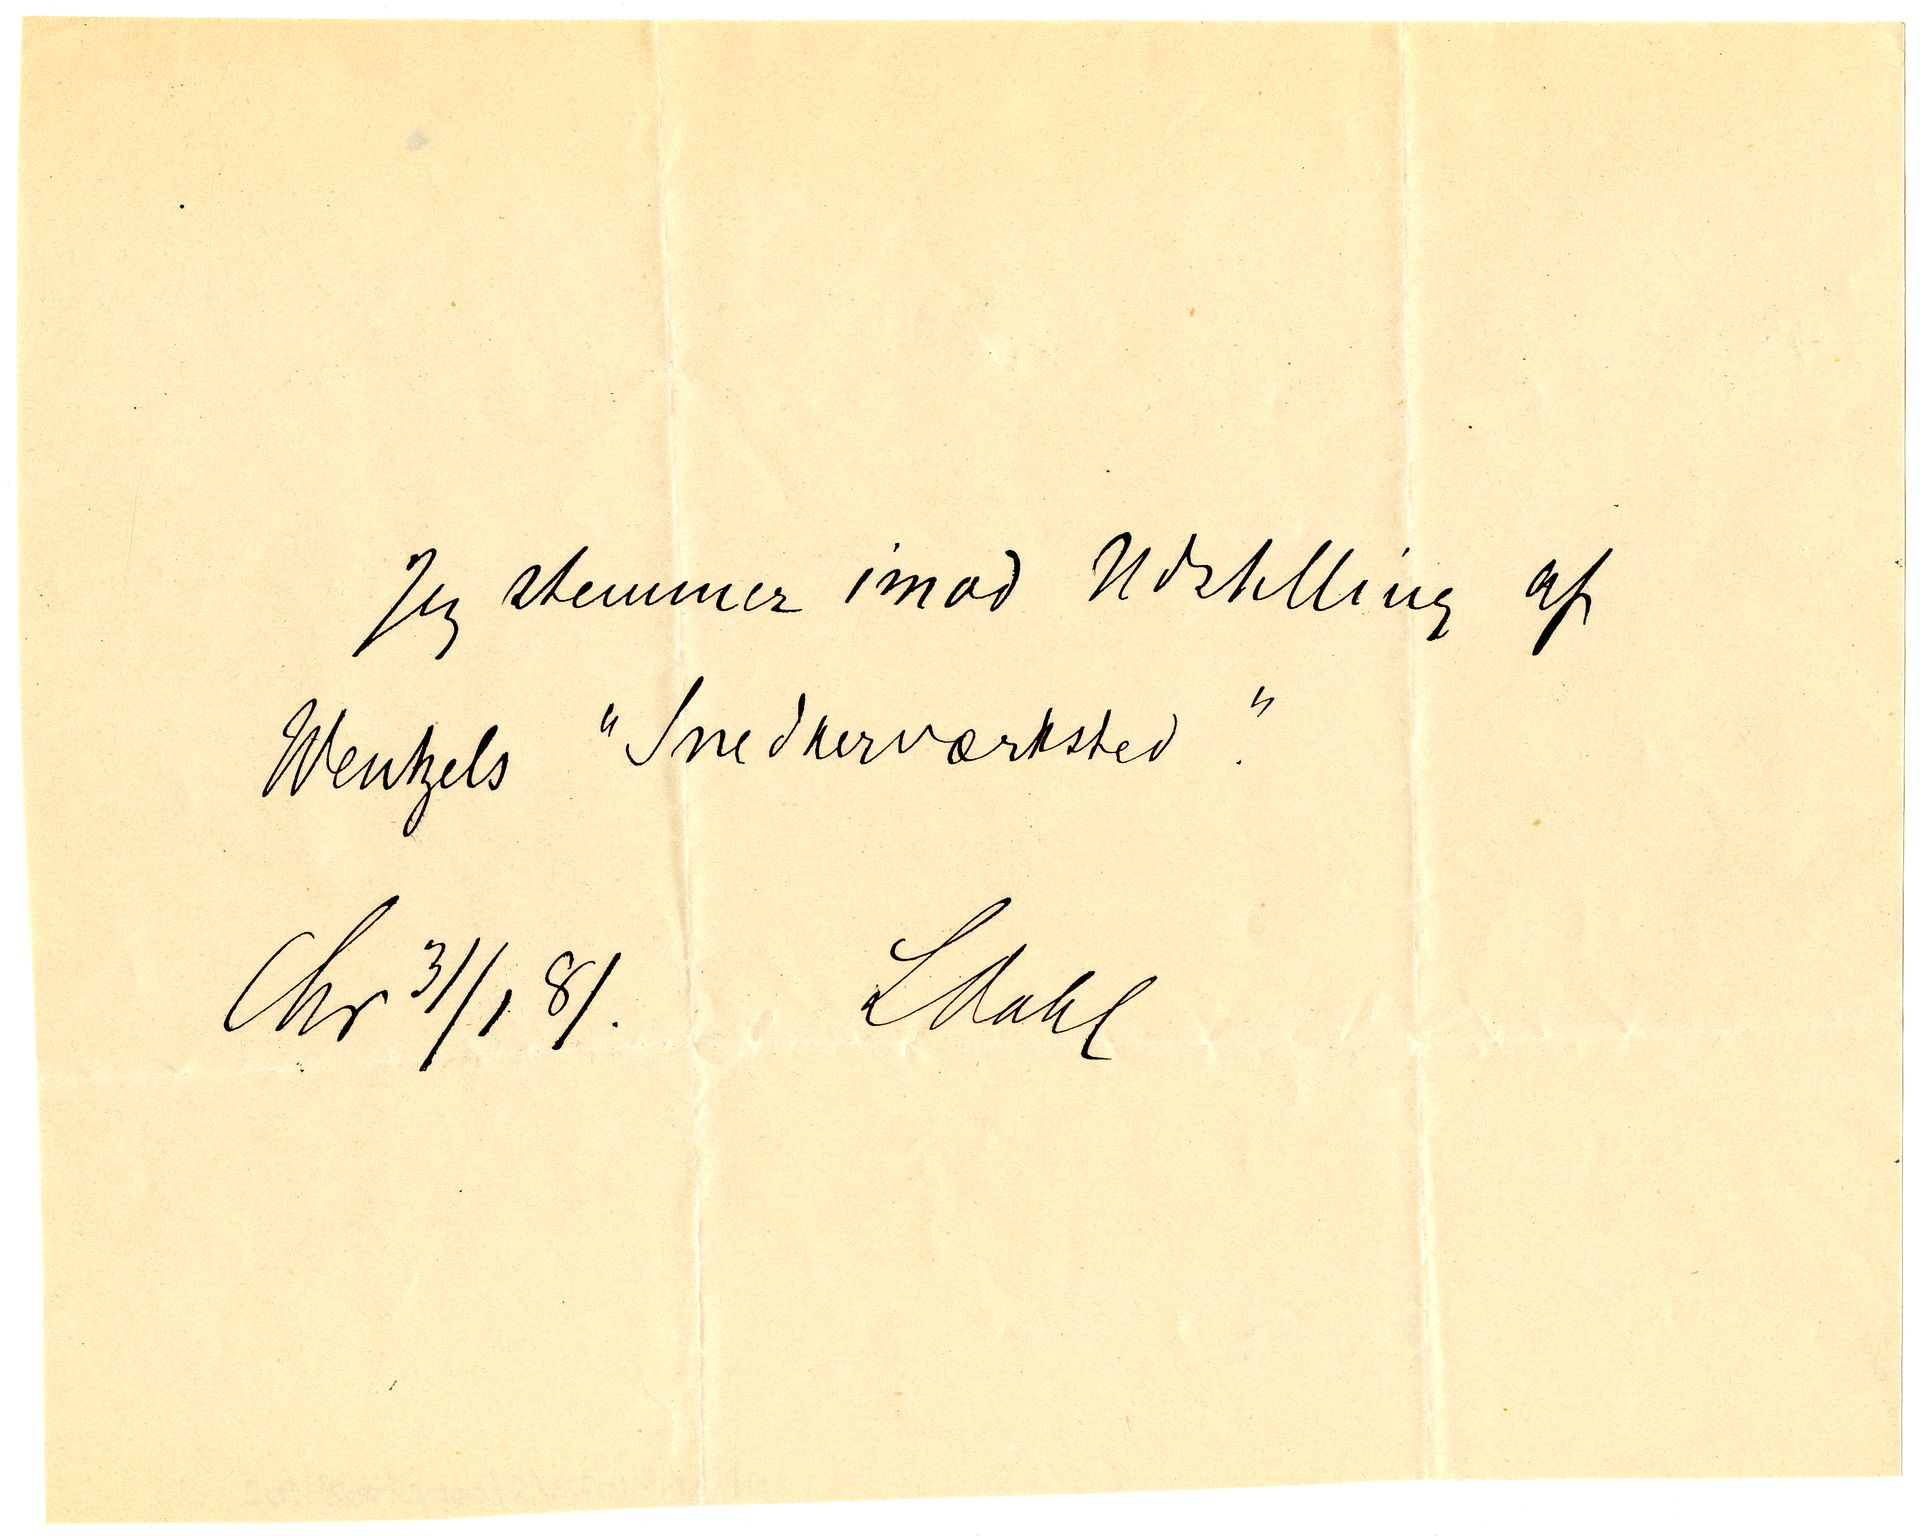 Jeg stemmer imod Udstilling af
Wentzels "Snedkerværksted".
Chr 31/1 81. LDahl